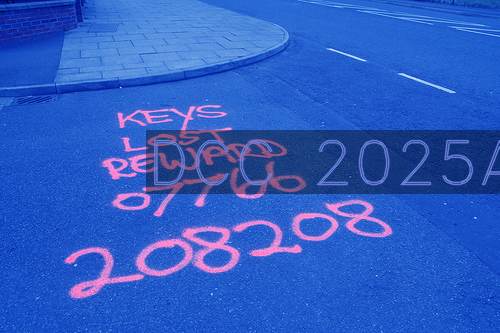 KEYS
LOST
REWARD
07766
208208
DCC 2025A